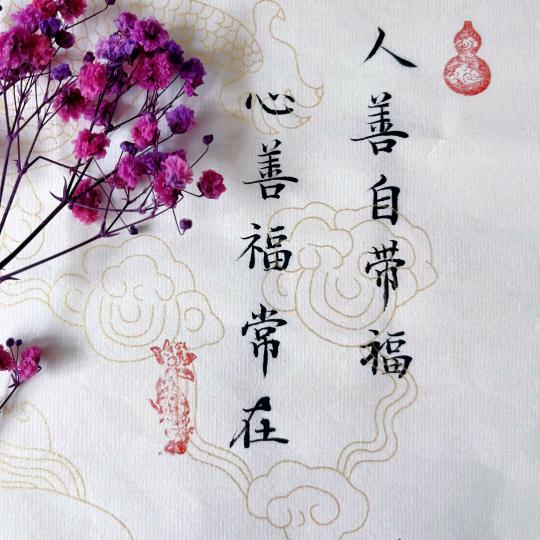 人善自带福
心善福常在